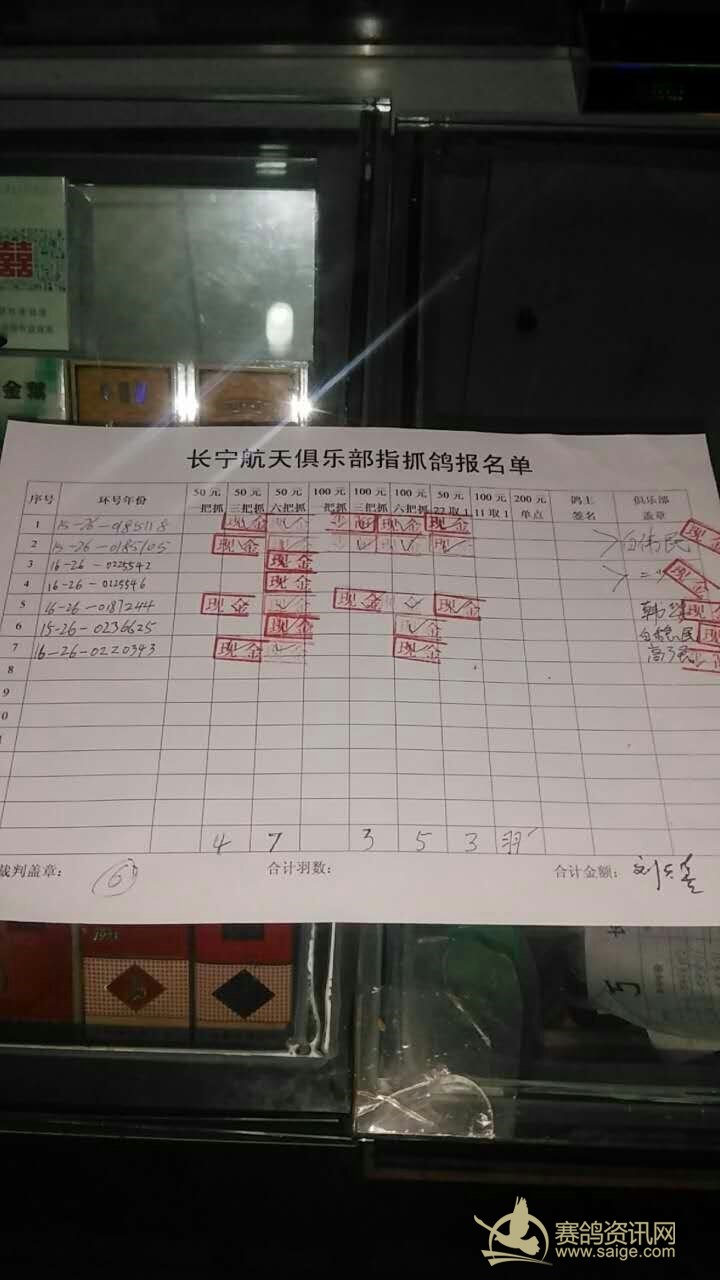 囍
金葉
长宁航天俱乐部指抓鸽报名单
序号 环号年份 50元一把抓 50元三把抓 50元六把抓 100元一把抓 100元三把抓 100元六把抓 50元22取1 100元11取1 200元单点 鸽主签名 俱乐部盖章
1 15-26-0185118 现金 现金 现金 现金
2 15-26-0185105 现金 现金 现金 白伟民
3 16-26-0225542 现金
4 16-26-0225546 现金 现金
5 16-26-0187244 现金 现金 现金 现金
6 15-26-0236625 现金 现金
7 16-26-0220343 现金 现金
8
9
0
4 7 3 5 3 羽
裁判盖章: 6 合计羽数: 合计金额:
1951
5
赛鸽资讯网
www.saige.com